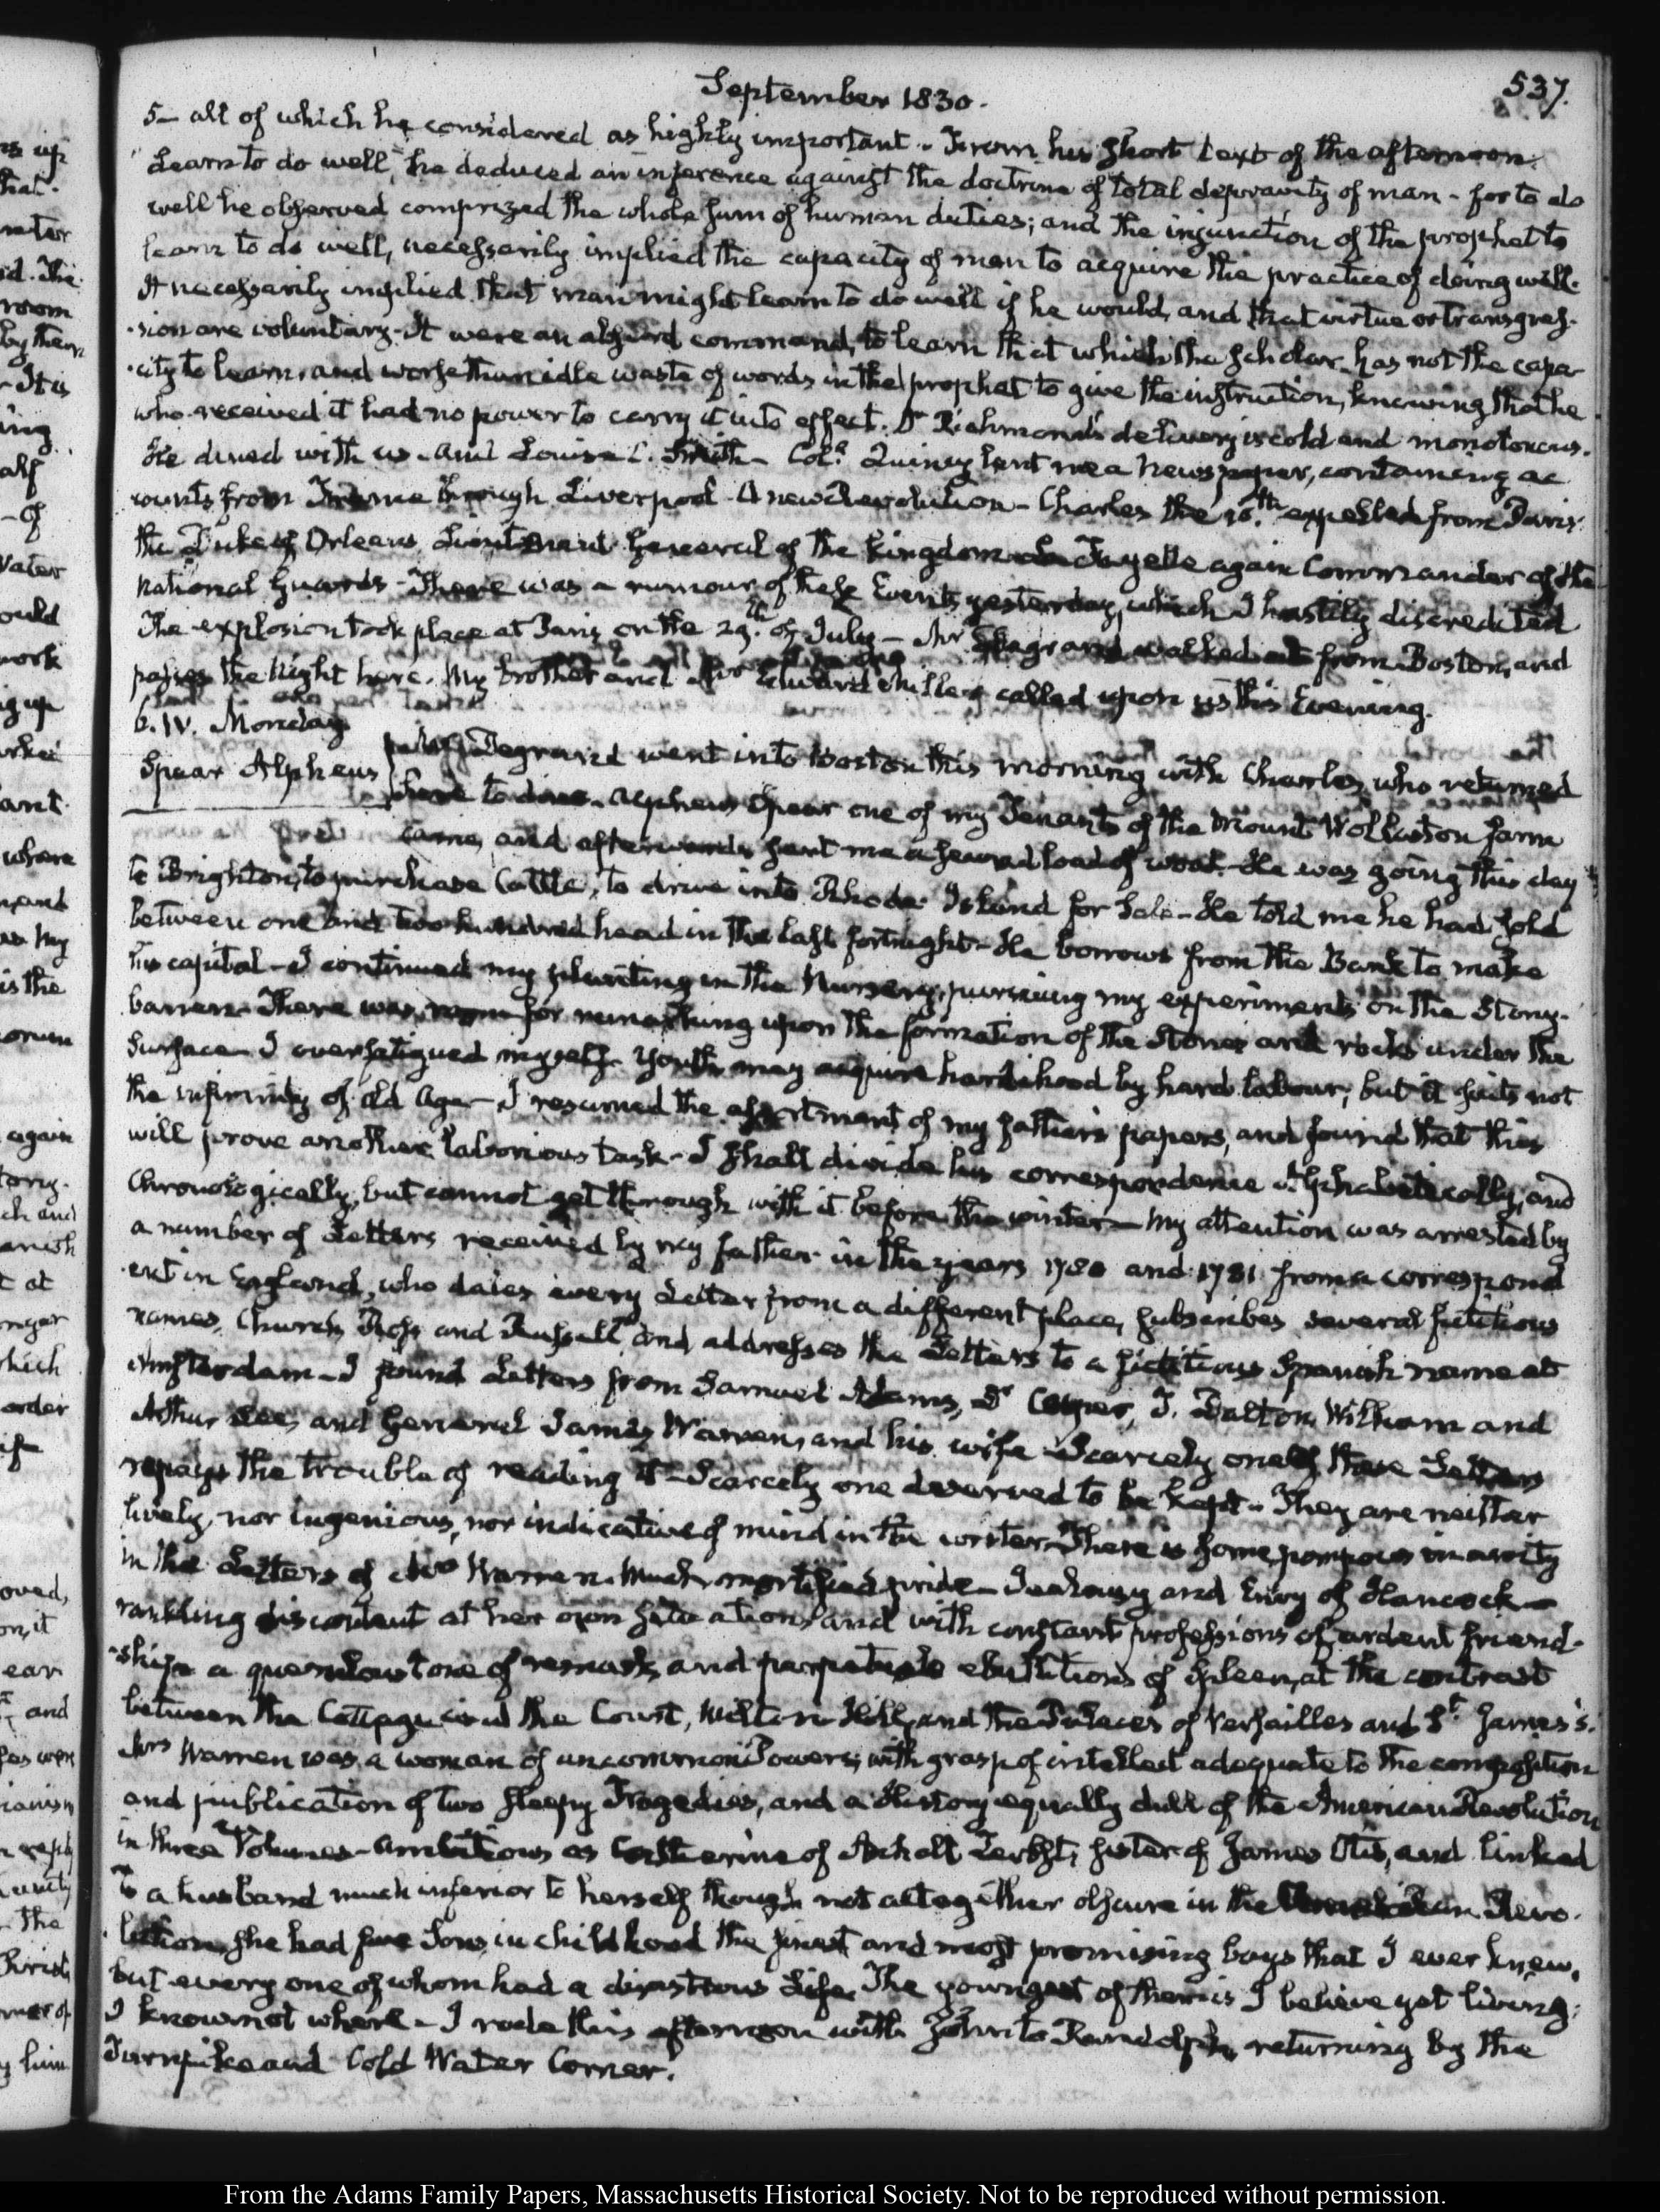 September 1830.
537.
5- all of which he considered as highly important. From his short text of the afternoon.
"Learn to do well," he deduced an inference against the doctrine of total depravity of man - for to do
well he observed comprized the whole sum of human duties; and the injunction of the prophet to
learn to do well, necessarily implied the capacity of man to acquire the practice of doing well.
It necessarily implied that man might learn to do well if he would, and that virtue or transgres-
-sion are voluntary. It were an absurd command, to learn that which the scholar has not the capa-
-city to learn, and worse than idle waste of words in the prophet to give the instruction, knowing that he
who received it had no power to carry it into effect. Dr Richmond's delivery is cold and monotonous.
He dined with us - and Louisa C. Smith - Col.l Quincy sent me a Newspaper, containing ac
counts from France through Liverpool. A new Revolution - Charles the 10th expelled from Paris.
the Duke of Orleans Lieutenant General of the Kingdom La Fayette again Commander of the
National Guards - There was a rumour of these Events yesterday, which I hastily discredited
The explosion took place at Paris on the 29th of July - Mr Degrand walked out from Boston, and
passes the Night here. My brother and Mrs Edward Miller called upon us this Evening.
6. IV. Monday
Spear Alpheus
Mr Degrand went into Boston this morning with Charles, who returned
here to dine. Alpheus Spear one of my Tenants of the Mount Wollaston farm
came, and afterwards sent me a second load of wood. He was going this day
to Brighton, to purchase Cattle, to drive into Rhode Island for Sale - He told me he had sold
between one and two hundred head in the last fortnight - He borrows from the Bank to make
his capital - I continued my planting in the Nursery, pursuing my experiments on the stony.
barren. There was room for remarking upon the formation of the stones and rocks under the
surface - I overfatigued myself. Youth may acquire hardihood by hard labour; but it suits not
the infirmity of old Age - I resumed the assortment of my father's papers, and found that this
will prove another laborious task - I shall divide his correspondence Alphabetically, and
Chronologically, but cannot get through with it before the winter - My attention was arrested by
a number of Letters received by my father in the years 1780 and 1781 from a correspond
-ent in England, who dates every Letter from a different place, subscribes several fictitious
names, Church, Ross and Russell and addresses the Letters to a fictitious Spanish name at
Amsterdam - I found Letters from Samuel Adams, Dr Cooper, T. Dalton, William and
Arthur Lee, and General James Warren, and his wife - Scarcely one of these Letters
repays the trouble of reading it - Scarcely one deserved to be kept - They are neither
lively, nor ingenious, nor indicative of mind in the writer - There is some pompous inanity
in the Letters of Mrs Warren. Much mortified pride - Jealousy and Envy of Hancock -
rankling discontent at her own situation and with constant professions of ardent friend-
-ship a querulous tone of remark, and perpetual ebullitions of spleen, at the contrast
between the Cottage and the Court, Milton Hill, and the Palaces of Versailles and St James's.
Mrs Warren was a woman of uncommon Powers; with grasp of intellect adequate to the composition
and publication of two sleepy Tragedies, and a History equally dull of the American Revolution
in three Volumes - ambitious as Catherine of Anhalt Zerbst, sister of James Otis, and linked
to a husband much inferior to herself though not altogether obscure in the American Revo-
-lution, she had five Sons, in childhood the finest and most promising boys that I ever knew,
but every one of whom had a disastrous Life. The youngest of them is I believe yet living;
I know not where - I rode this afternoon with John to Randolph, returning by the
Turnpike and Cold Water Corner.
From the Adams Family Papers, Massachusetts Historical Society. Not to be reproduced without permission.